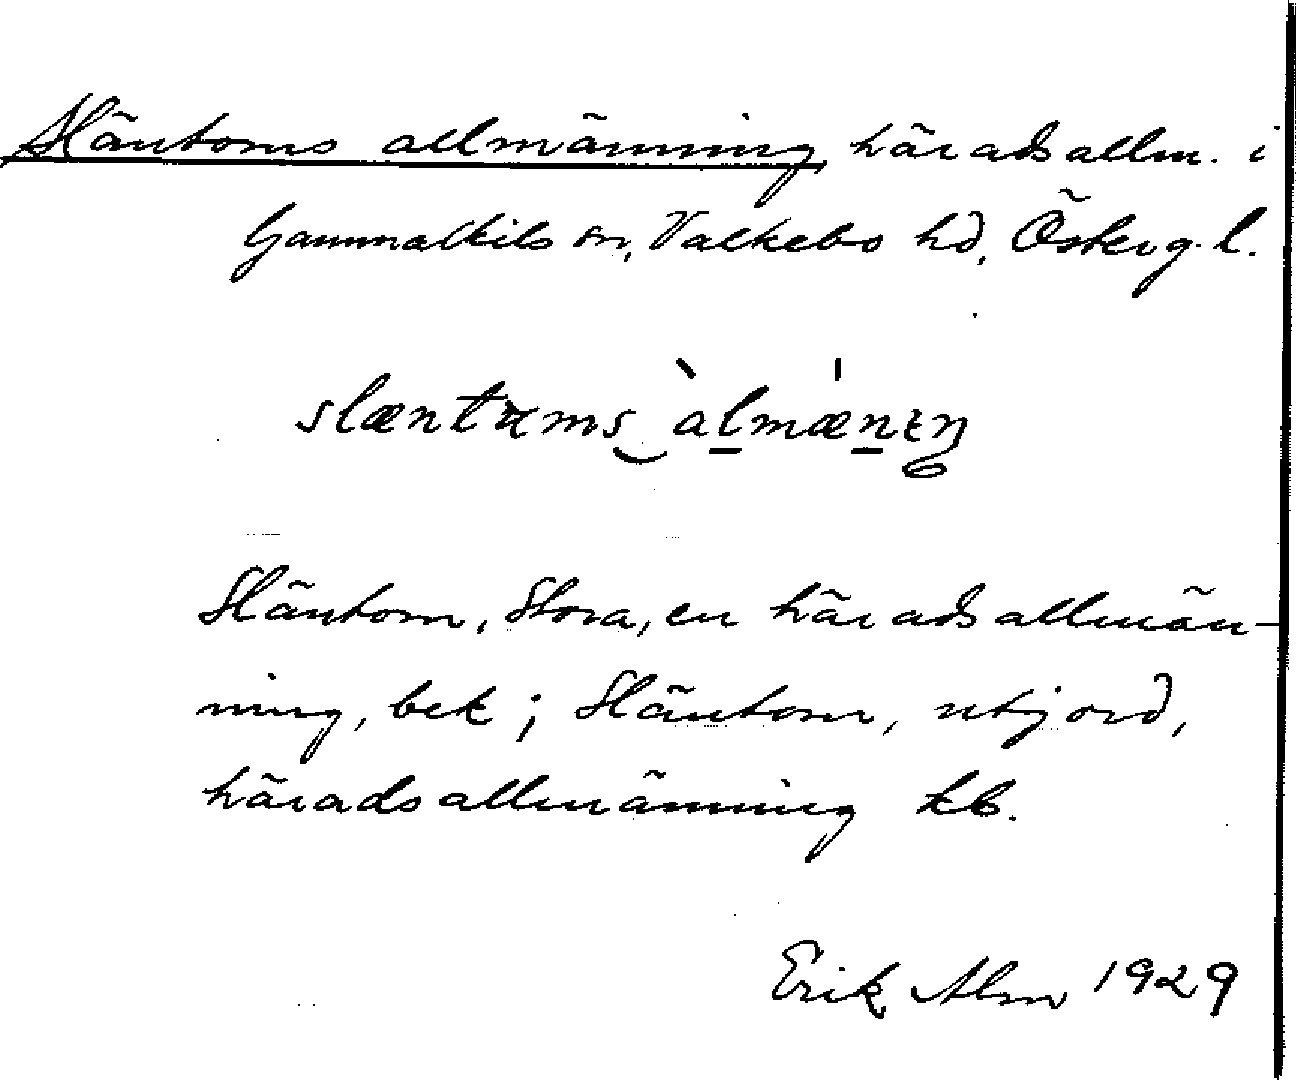 Släntoms allmänning, häradsallm. i
Gammalkils sn, Valkebo hd, Österg. l.
slæntɷms àlmæ̍nɪŋ
Släntom, Stora, en häradsallmän-
ning, bek; Släntom, utjord,
häradsallmänning kb.
Erik Alm 1929